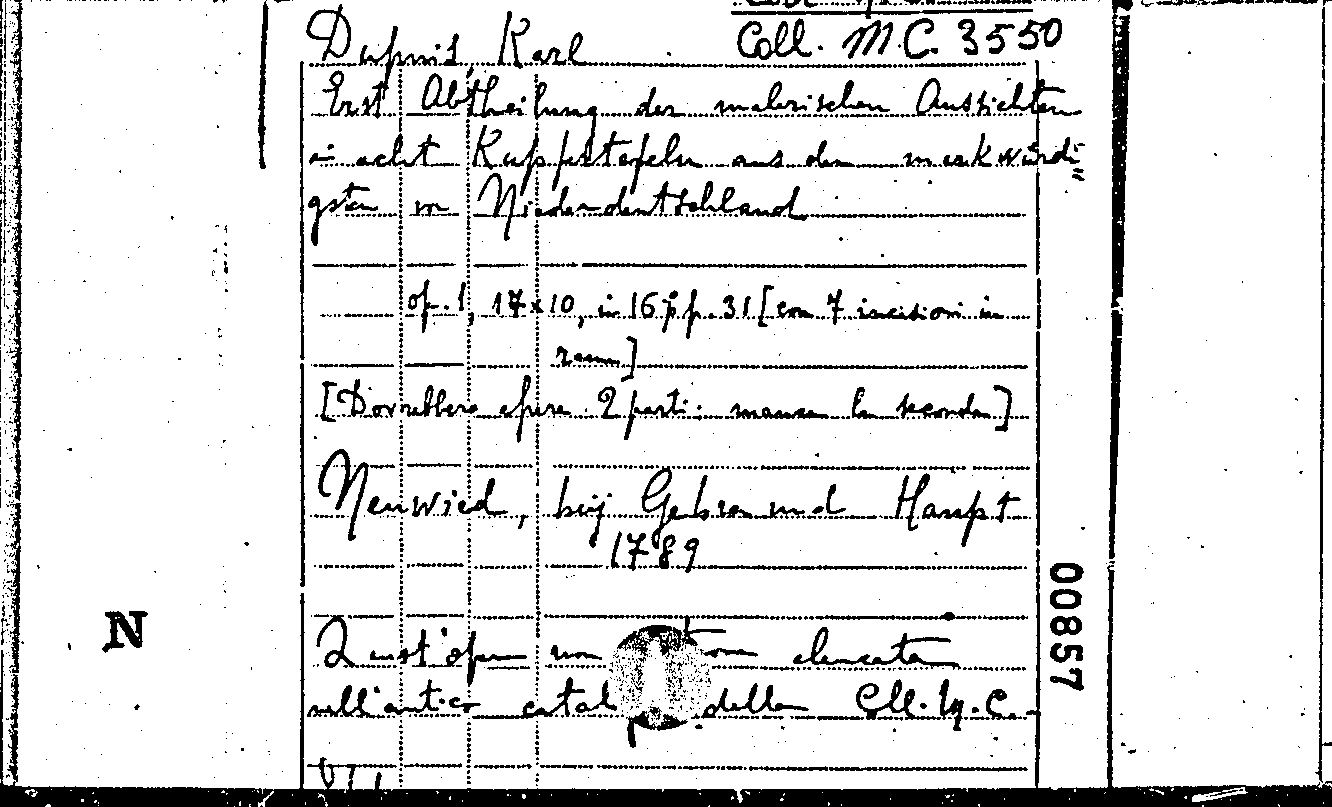 Coll. M.C. 3550
Dupuis, Karl
Erst Abtheilung der malerischen Aussichten
in acht Kupfertafeln aus den merkwürdi„
gsten von Niederdeutschland
op. 1, 17x10, in 16° pp. 31 [con 7 incisioni in
rame]
[Dovrebbero essere 2 parti: manca la seconda]
Neuwied, bey Gebr. und Haupt
1789
Quest'opera non trova elencata
nell'antico catal della Coll. M.C.
00857
N